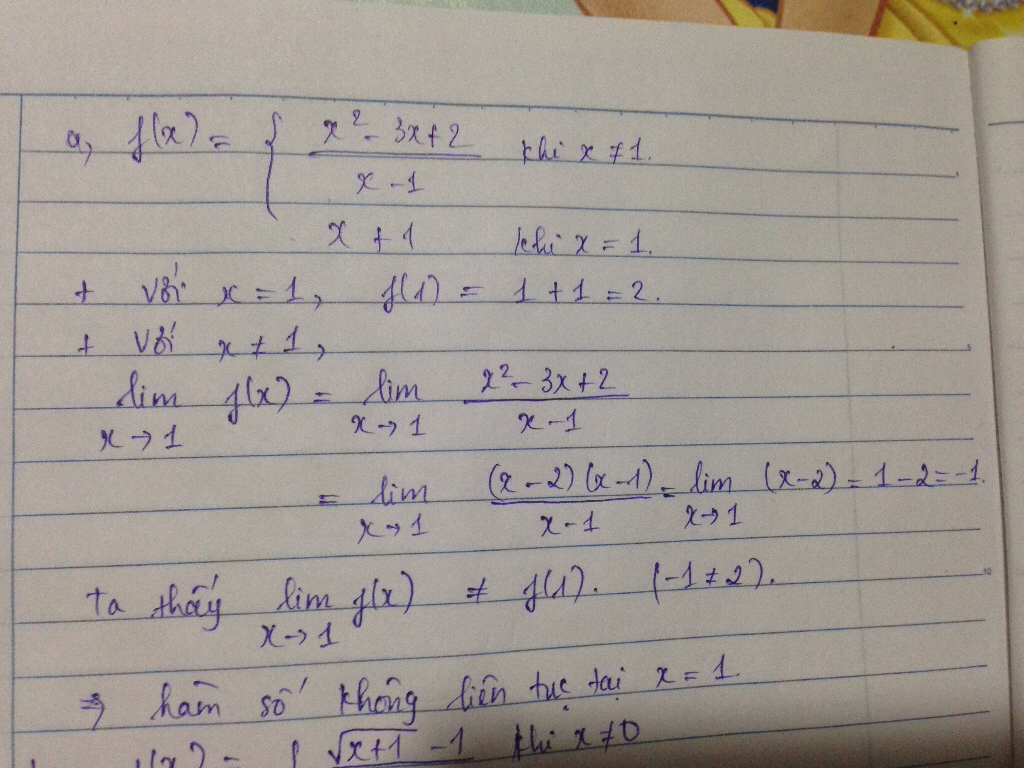 a, f(x) = { x² - 3x + 2 / x - 1 khi x ≠ 1.
x + 1 khi x = 1.
+ với x = 1, f(1) = 1 + 1 = 2.
+ với x ≠ 1,
lim x→1 f(x) = lim x→1 x² - 3x + 2 / x - 1
= lim x→1 (x - 2)(x - 1) / x - 1 = lim x→1 (x - 2) = 1 - 2 = -1.
Ta thấy lim x→1 f(x) ≠ f(1). (-1 ≠ 2).
⇒ hàm số không liên tục tại x = 1.
f(x) = { √x+1 - 1 khi x ≠ 0